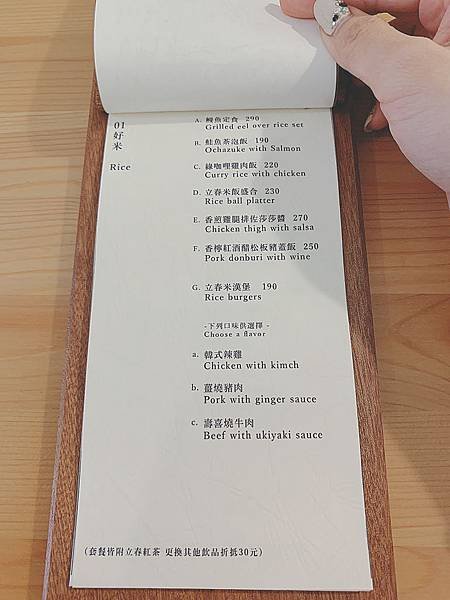 01
好
米
Rice
A. 鰻魚定食 290
Grilled eel over rice set
B. 鮭魚茶泡飯 190
Ochazuke with Salmon
C. 綠咖哩雞肉飯 220
Curry rice with chicken
D. 立春米飯盛合 230
Rice ball platter
E. 香煎雞腿排佐莎莎醬 270
Chicken thigh with salsa
F. 香檸紅酒醋松板豬蓋飯 250
Pork donburi with wine
G. 立春米漢堡 190
Rice burgers
-下列口味供選擇 -
Choose a flavor
a. 韓式辣雞
Chicken with kimch
b. 薑燒豬肉
Pork with ginger sauce
c. 壽喜燒牛肉
Beef with ukiyaki sauce
(套餐皆附立春紅茶 更換其他飲品折抵30元)